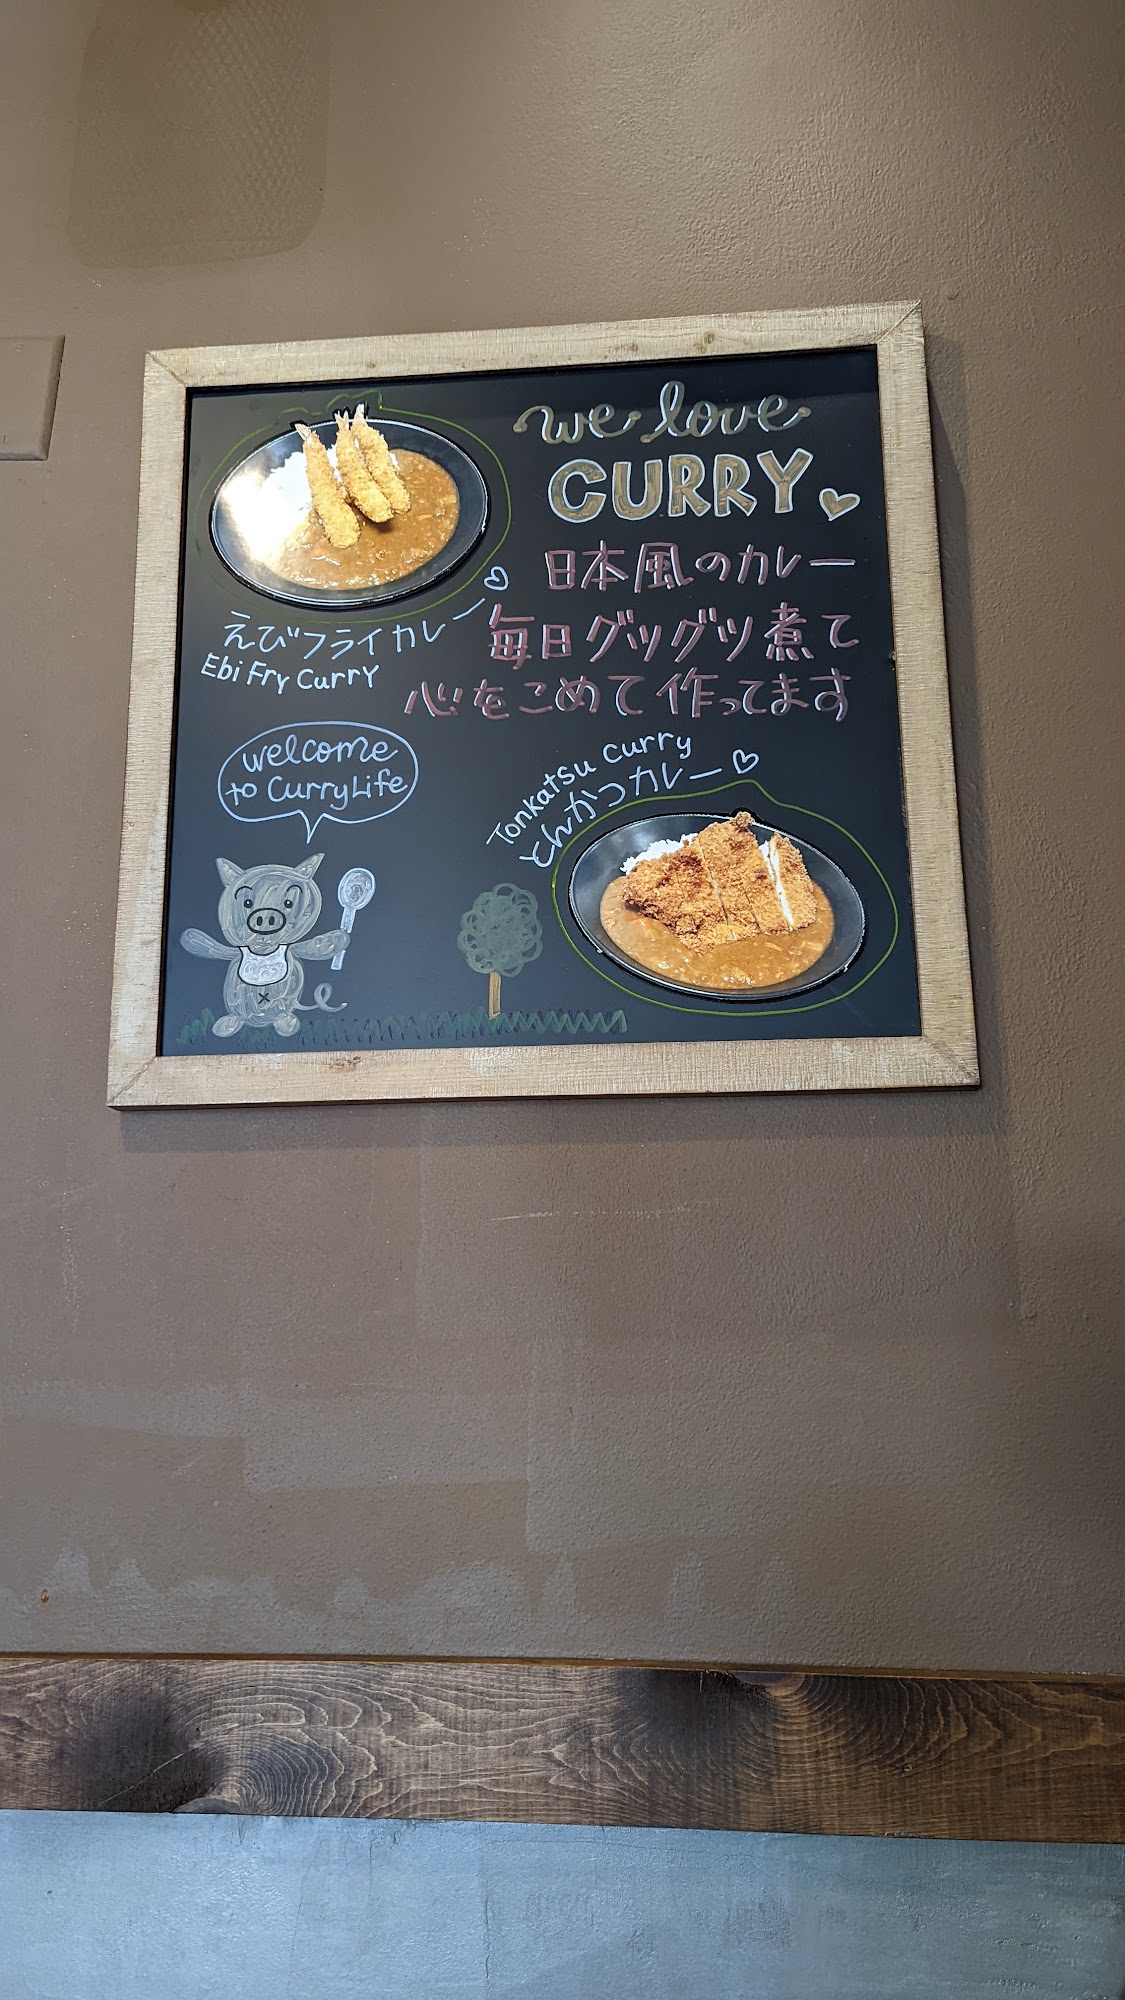 we love
CURRY
日本風のカレー
毎日グツグツ煮て
心をこめて作ってます
えびフライカレー
Ebi Fry Curry
welcome
to CurryLife
Tonkatsu Curry
とんかつカレー